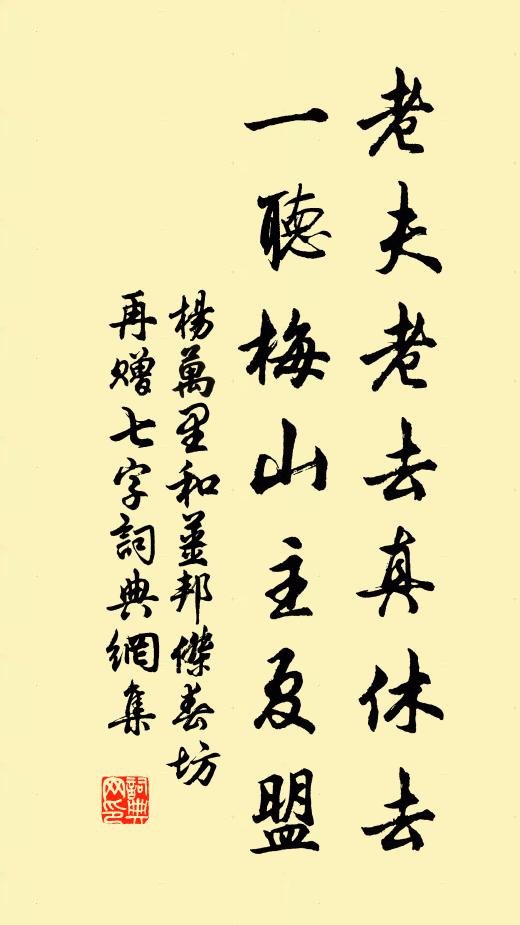 老夫老去真休去
一聽梅山主夏盟
楊萬里和薑邦傑春坊
再贈七字詞典網集
詞典
网印